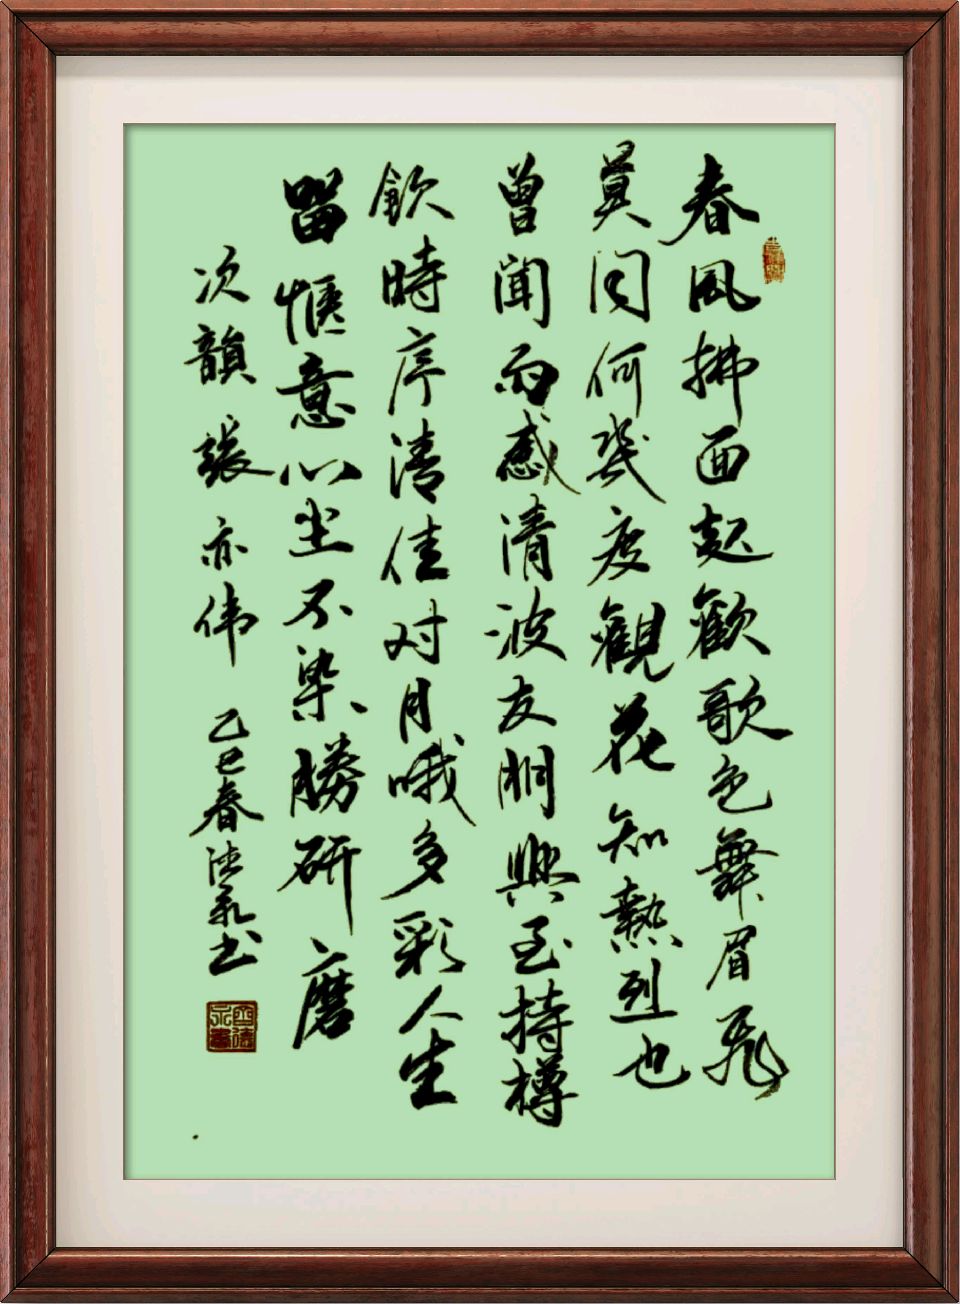 春風拂面起歡歌色舞眉飛
莫问何幾度觀花知熱烈也
曾聞雨感清波友朋興至持樽
飲時序清佳对月哦多彩人生
留惬意心尘不染勝研磨
次韻張亦伟 乙巳春德永书